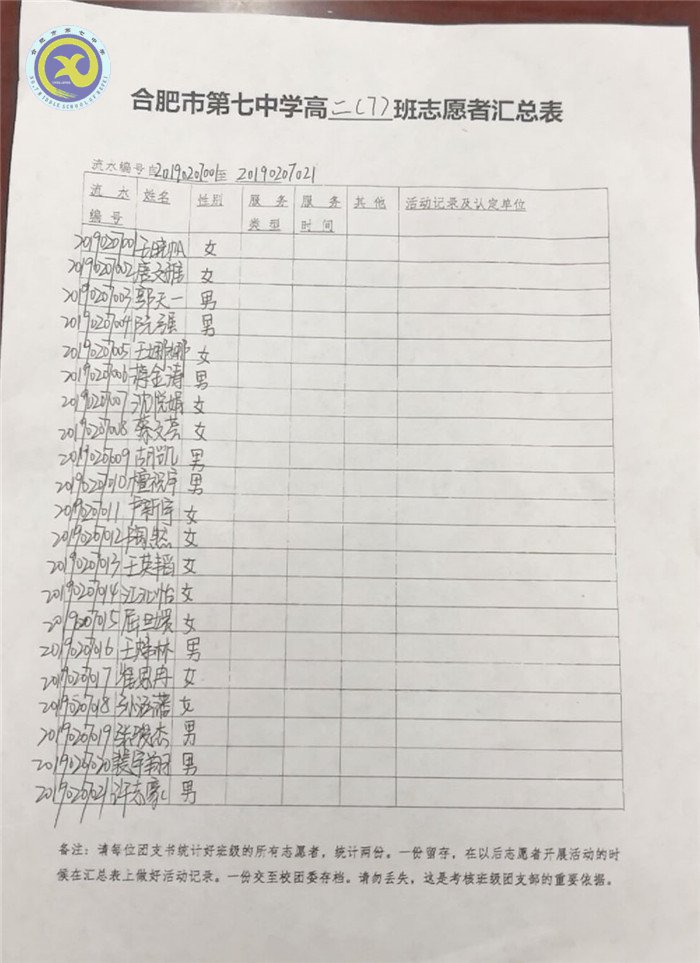 合肥市第七中学
NO.7 MIDDLE SCHOOL OF HEFEI
合肥市第七中学高二(7)班志愿者汇总表
流水编号自20190207001至 20190207021
流水编号 姓名 性别 服务类型 服务时间 其他 活动记录及认定单位
20190207001 女
20190207002 唐文雅 女
20190207003 郭天一 男
20190207004 阮强 男
20190207005 王娜娜 女
20190207006 蒋金涛 男
20190207007 沈悦娟 女
20190207008 蔡文芸 女
20190207009 胡凯 男
20190207010 檀祝宇 男
20190207011 尹新宇 女
20190207012 陶然 女
20190207013 王英韬 女
20190207014 怡 女
20190207015 屈旦媛 女
20190207016 王烽林 男
20190207017 程思冉 女
20190207018 孙涵蕃 女
20190207019 张骏杰 男
20190207020 裴宇翔 男
20190207021 许志豪 男
备注：请每位团支书统计好班级的所有志愿者，统计两份。一份留存，在以后志愿者开展活动的时
候在汇总表上做好活动记录。一份交至校团委存档。请勿丢失，这是考核班级团支部的重要依据。